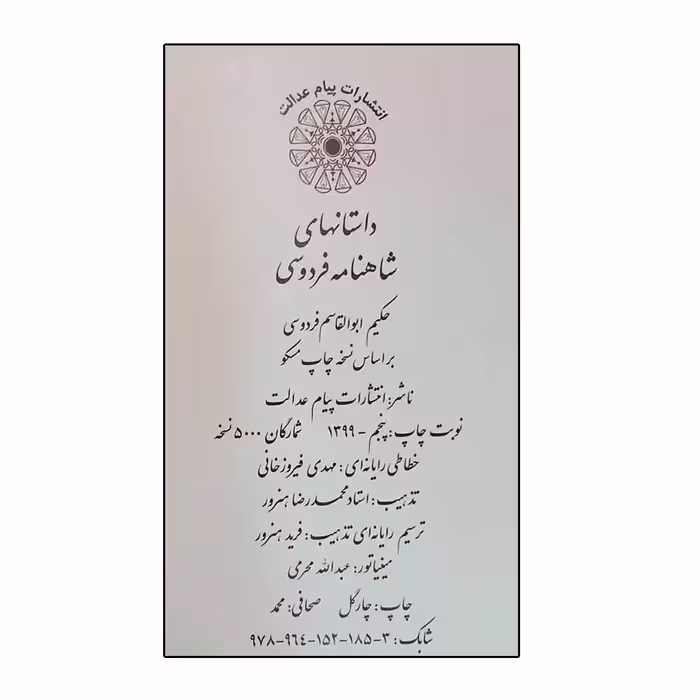 انتشارات پیام عدالت
داستانهای
شاهنامه فردوسی
حکیم ابوالقاسم فردوسی
بر اساس نسخه چاپ مسکو
ناشر: انتشارات پیام عدالت
نوبت چاپ: پنجم - ۱۳۹۹ شمارگان ۵۰۰۰ نسخه
خطاطی رایانه‌ای: مهدی فیروزخانی
تذهیب: استاد محمدرضا هنرور
ترسیم رایانه‌ای تذهیب: فرید هنرور
مینیاتور: عبدالله محرمی
چاپ: چارگل صحافی: محمد
شابک: ۳-۱۸۵-۱۵۲-۹۶۴-۹۷۸